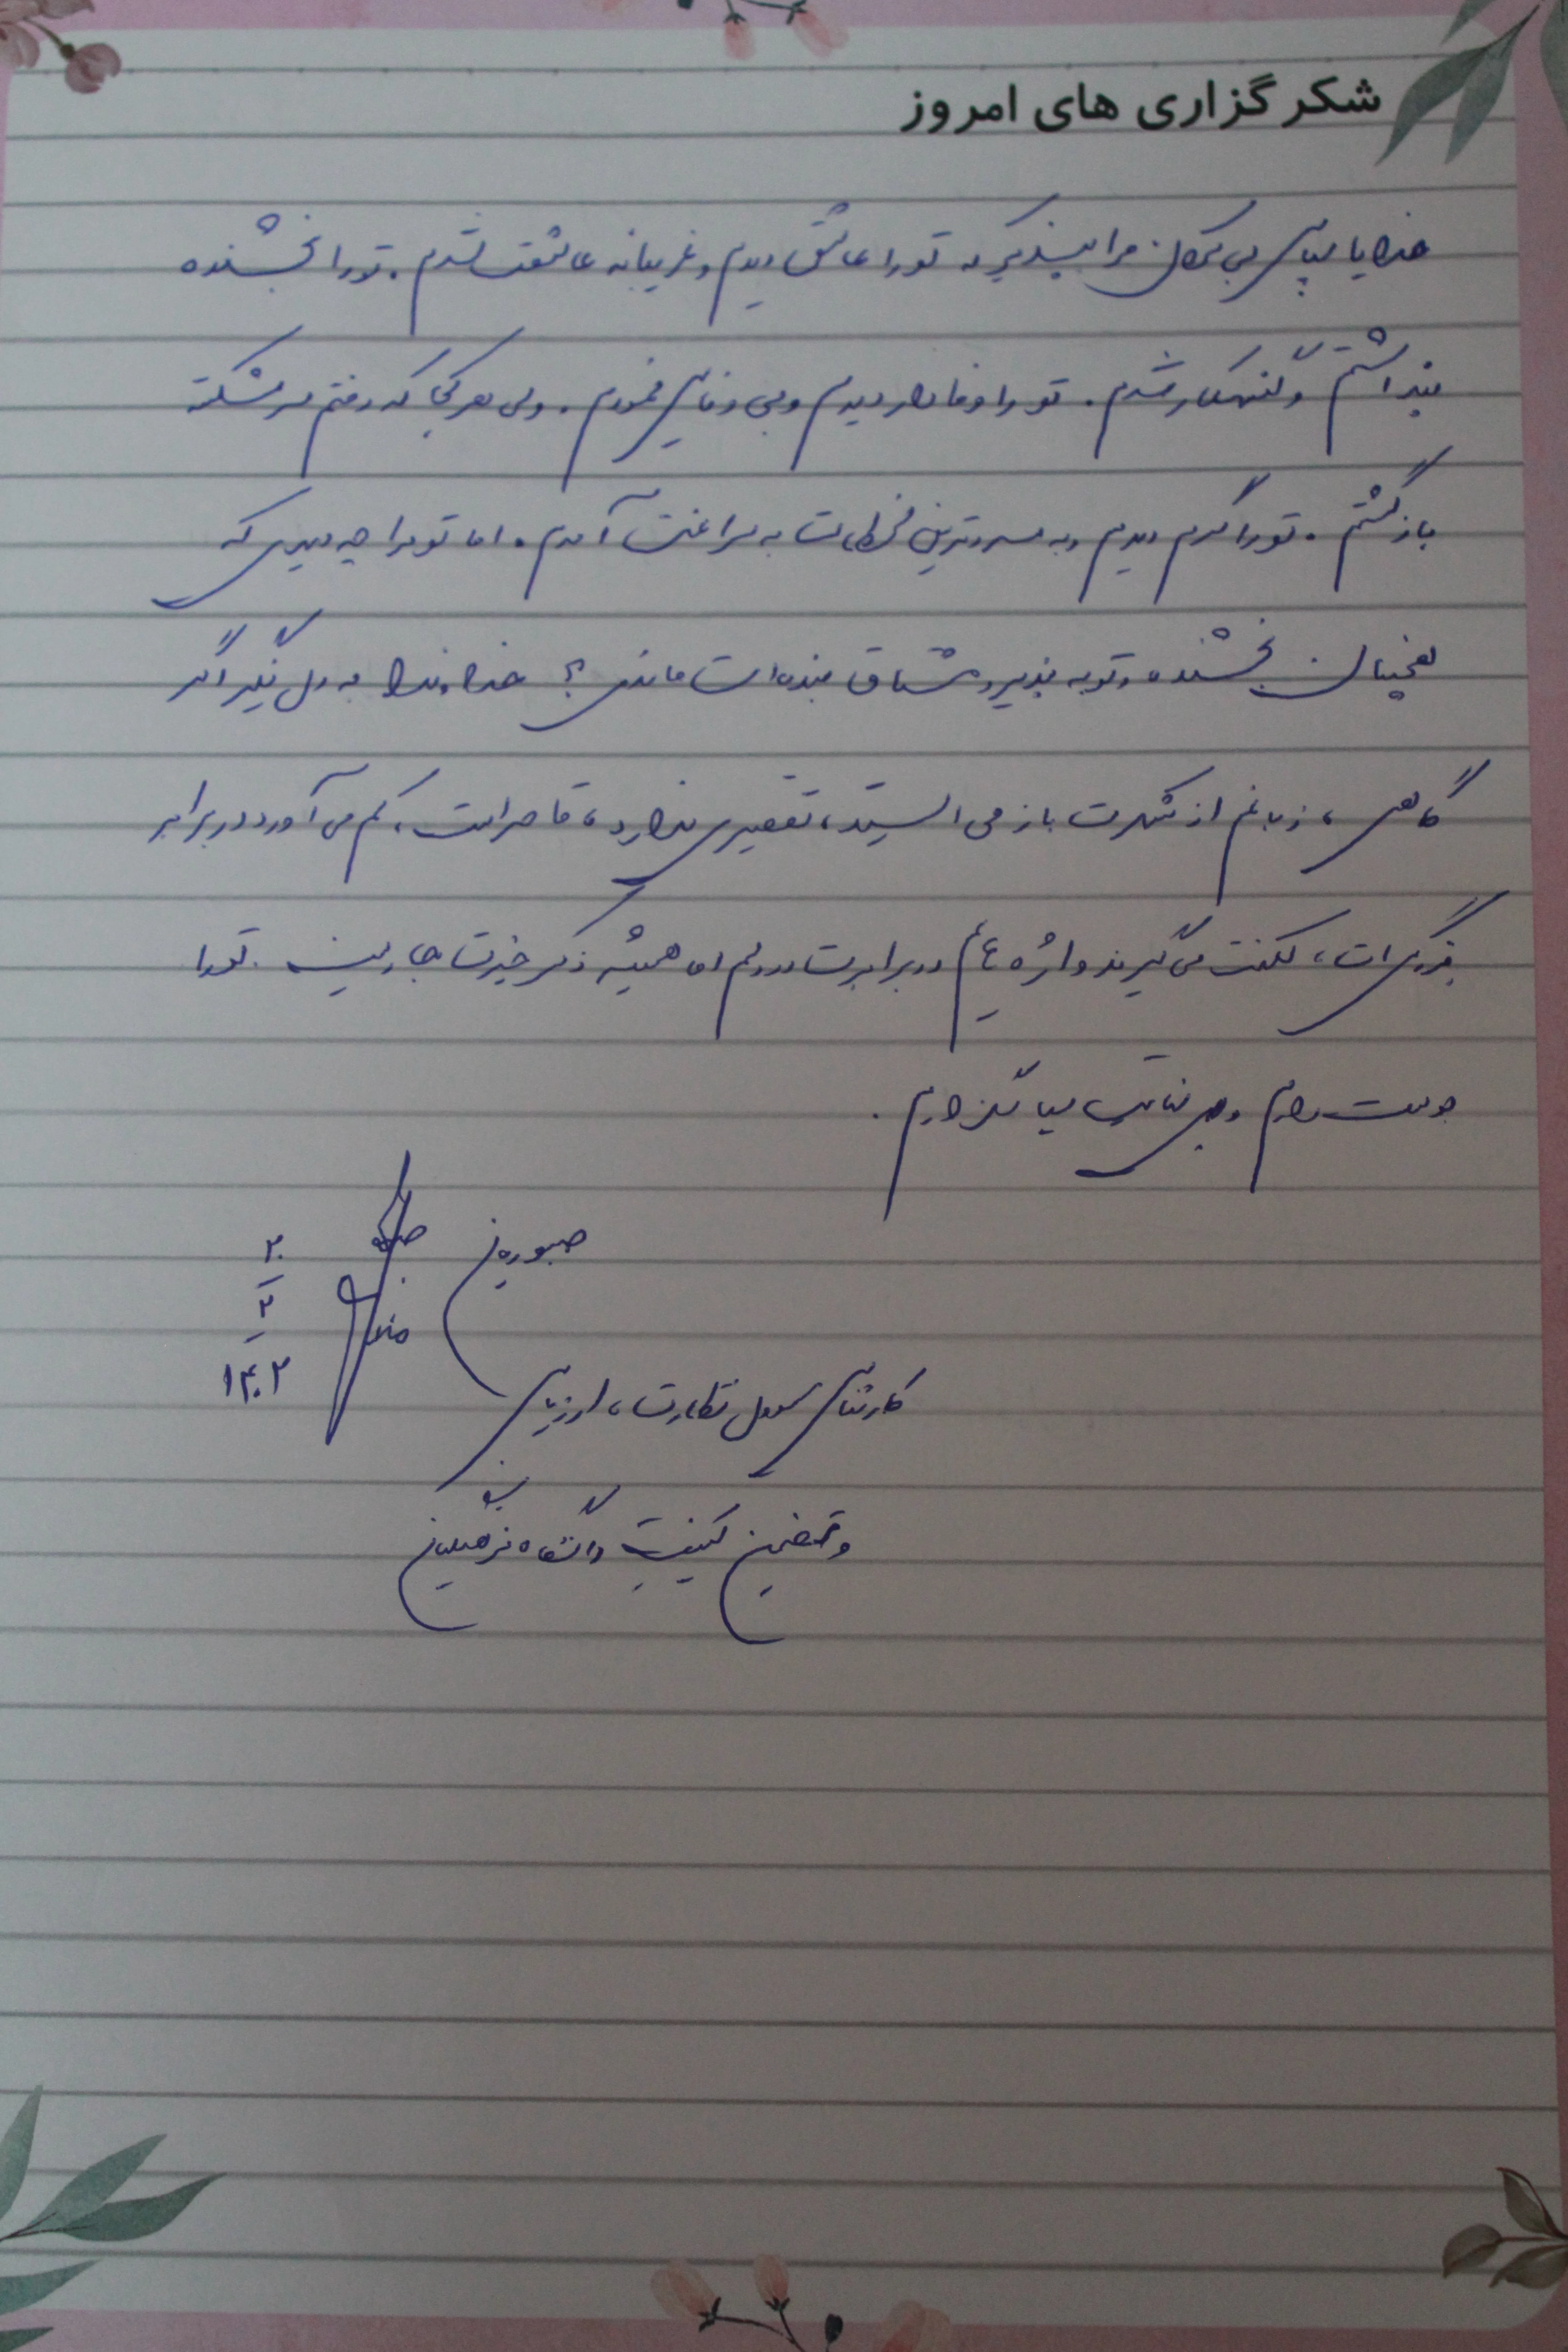 شکر گزاری های امروز
خدایا سپاس بی کران مرا بپذیر که تو را عاشق دیدم و غریبانه عاشقت شدم. تو را بخشنده
پنداشتم و گنهکار شدم. تو را وفادار دیدم و بی وفایی نمودم. ولی هر کجا که رفتم سرشکسته
بازگشتم. تو را گرم دیدم و به سردترین لحظات به سراغت آمدم. اما تو مرا چه دیدی که
همچنان بخشنده و توبه پذیر و مشتاق بنده ات ماندی؟ خداوندا به دل نگیر اگر
گاهی، زبانم از شکرت باز می ایستد، تقصیری ندارد، قاصر است، کم می آورد در برابر
بزرگی ات، لکنت می گیرند واژه هایم در برابرت در دلم اما همیشه ذکر خیرت جاریست. تو را
دوست دارم و بی نهایت سپاسگزارم.
صبوریان
کارشناس مسئول نظارت، ارزیابی
و تضمین کیفیت دانشگاه فرهنگیان
۲۰
۲
۱۴۰۲